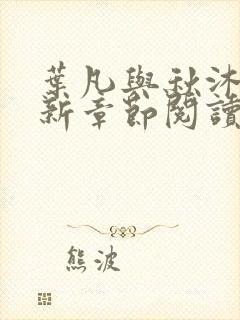 葉凡與秋沐
新章節閱讀
熊波